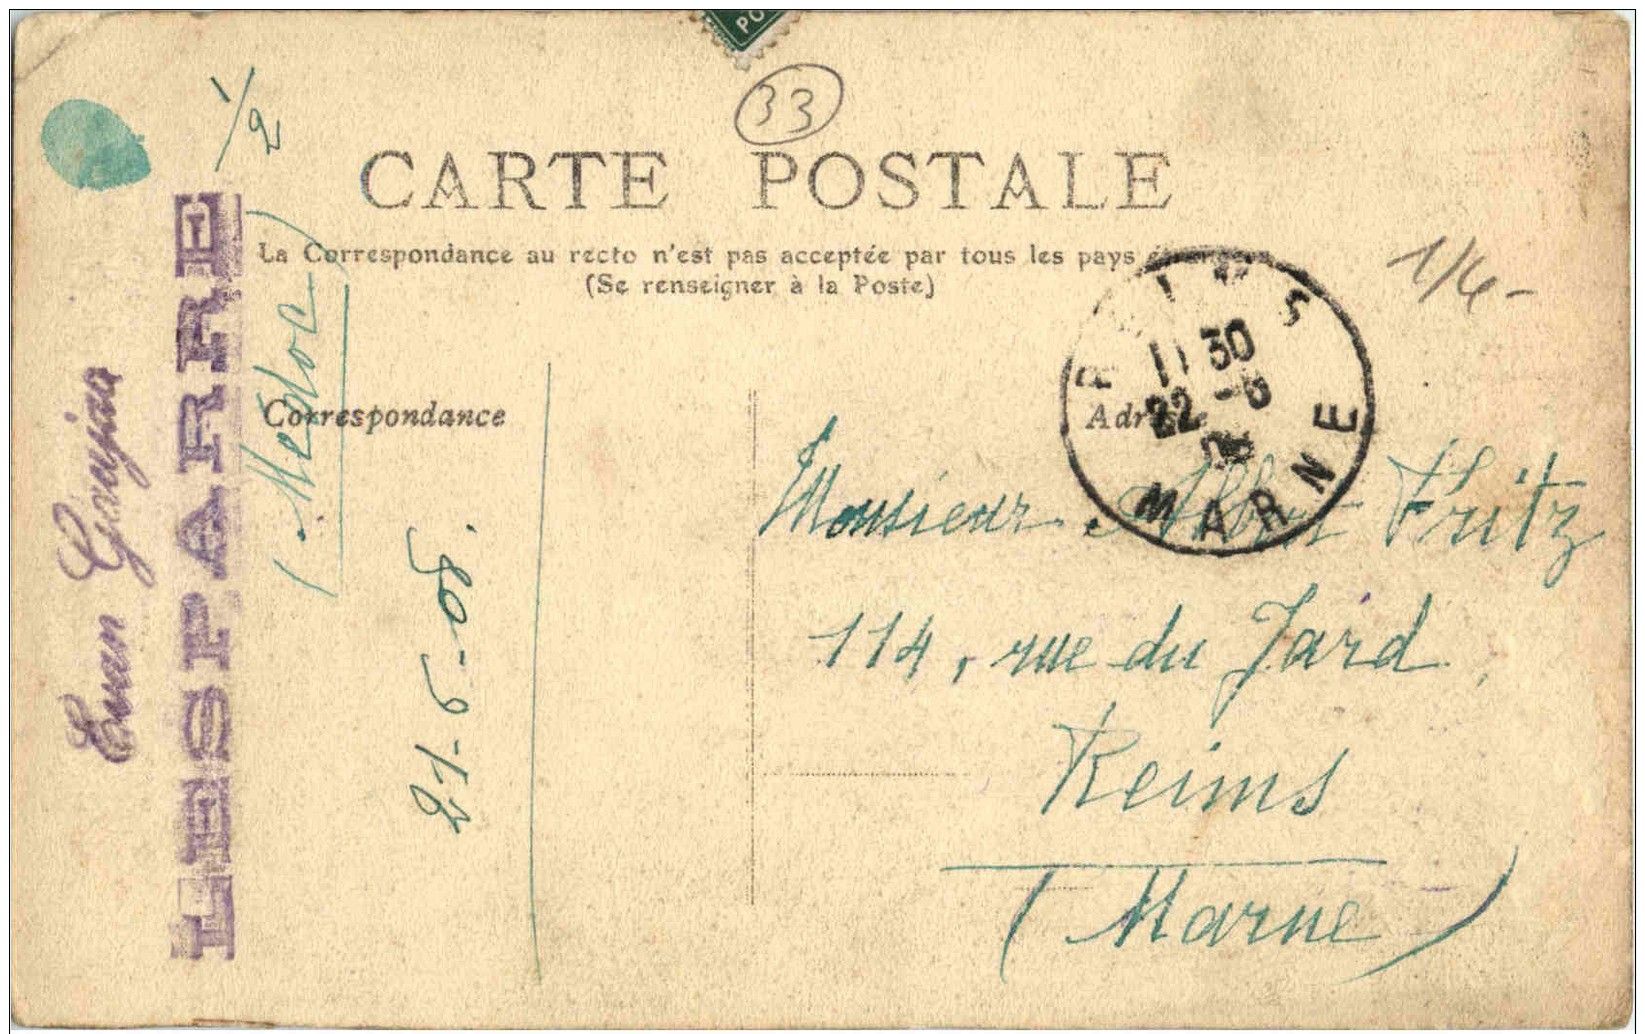 PO
33
1/2
CARTE POSTALE
La Correspondance au recto n'est pas acceptée par tous les pays étrangers
(Se renseigner à la Poste)
1/4-
REIMS
11 30
22 -5
MARNE
Correspondance
Adresse
Evan
LESPARRE
(Médoc)
21-5-08.
Monsieur Albert Fritz
114, rue du Jard,
Reims
(Marne)